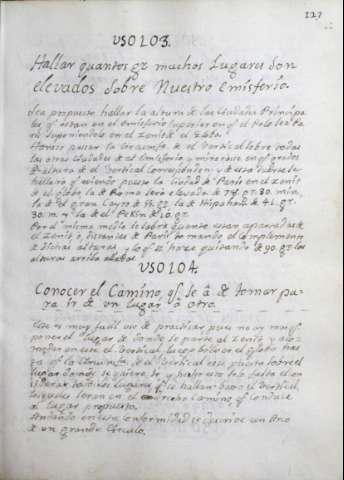 127
USO 103.
Hallar quantos gr. muchos Lugares son
elevados sobre Nuestro emisferio.
Sea propuesto hallar la altura de las Ciudades Principa
les qe. estan en el emisferio superior en qe. el Polo sea Pa
ris suponiendole en el zenit de el Globo.
Haras pasar la Circumfa. de el Vertical sobre todas
las otras Ciudades de el emisferio, y miraras en qe. grados
de altura de el Vertical Corresponden, y de esta suerte se
hallara qe. siendo puesta la Ciudad de Paris en el zenit
de el globo, la de Roma sera elevada de 78. gr. 30. min.
la de el gran Cayro de la de Hispahan de 41. gr.
30. m. y la de el Pekin de 10. gr.
Por el mismo modo se sabra quanto estan apartadas de
el zenit o, distantes de Paris tomando el Complemento
de dichas alturas, lo qe. se hace quitando de 90. gr. las
alturas arriba
USO 104.
Conocer el Camino, qe. se à de tomar pa
ra ir de un lugar â otro.
Este es muy facil uso de practicar pues no ay mas qe.
poner el lugar de donde se parte al Zenit y aco-
modar en este el Vertical, luego bolver el globo
la Circumfa. de el Vertical este puesta sobre el
lugar donde se quiere ir, y hecho esto solo falta el con
siderar todos los lugares qe. se hallan baxo el Vertical,
los quales seran en el derecho Camino, qe. conduce
al lugar propuesto.
Andando en esta conformidad se describe un Arco
de un grande Circulo.